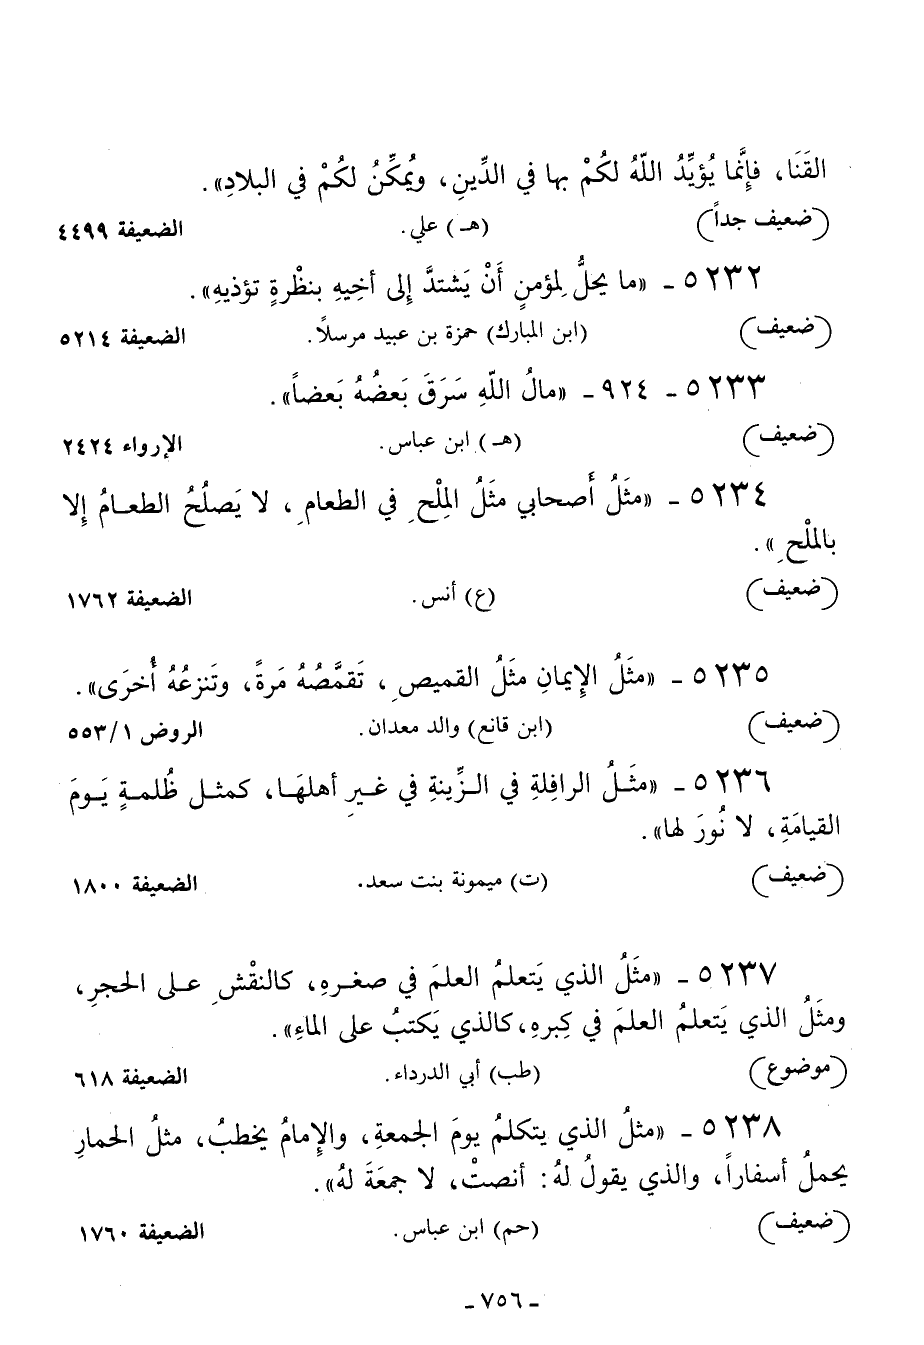 القَنَا، فإِنَّما يُؤيِّدُ اللّهُ لكُمْ بها في الدِّينِ، ويُمكِّنُ لكُمْ في البلادِ».
(ضعيف جداً) (هـ) علي. الضعيفة ٤٤٩٩
٥٢٣٢ ـ «ما يحلُّ لمؤمنٍ أَنْ يَشتدَّ إِلى أخِيهِ بنظْرةٍ تؤذيهِ».
(ضعيف) (ابن المبارك) حمزة بن عبيد مرسلاً. الضعيفة ٥٢١٤
٥٢٣٣ ـ ٩٢٤ ـ «مالُ اللّهِ سَرَقَ بَعضُهُ بَعضاً».
(ضعيف) (هـ) ابن عباس. الإرواء ٢٤٢٤
٥٢٣٤ ـ «مثَلُ أَصحابي مثَلُ المِلْحِ في الطعامِ، لا يَصلُحُ الطعـامُ إِلا
بالملْحِ».
(ضعيف) (ع) أنس. الضعيفة ١٧٦٢
٥٢٣٥ ـ «مثَلُ الإِيمانِ مثَلُ القميصِ، تَقمَّصُهُ مَرةً، وتَنزعُهُ أُخرَى».
(ضعيف) (ابن قانع) والد معدان. الروض ٥٥٣/١
٥٢٣٦ ـ «مثَـلُ الرافِلةِ في الـزِّينةِ في غـيرِ أهلهَـا، كمثـل ظُلمـةٍ يَـومَ
القيامَةِ، لا نُورَ لها».
(ضعيف) (ت) ميمونة بنت سعد. الضعيفة ١٨٠٠
٥٢٣٧ ـ «مثَلُ الذي يَتعلمُ العلمَ في صغـرهِ، كالنقْشِ عـلى الحجرِ،
ومثَلُ الذي يَتعلمُ العلمَ في كِبرهِ، كالذي يَكتبُ على الماءِ».
(موضوع) (طب) أبي الدرداء. الضعيفة ٦١٨
٥٢٣٨ ـ «مثلُ الذي يتكلمُ يومَ الجمعةِ، والإِمامُ يخطبُ، مثلُ الحمارِ
يحملُ أسفاراً، والذي يقولُ لهُ: أنصتْ، لا جمعَةَ لهُ».
(ضعيف) (حم) ابن عباس. الضعيفة ١٧٦٠
ـ ٧٥٦ ـ